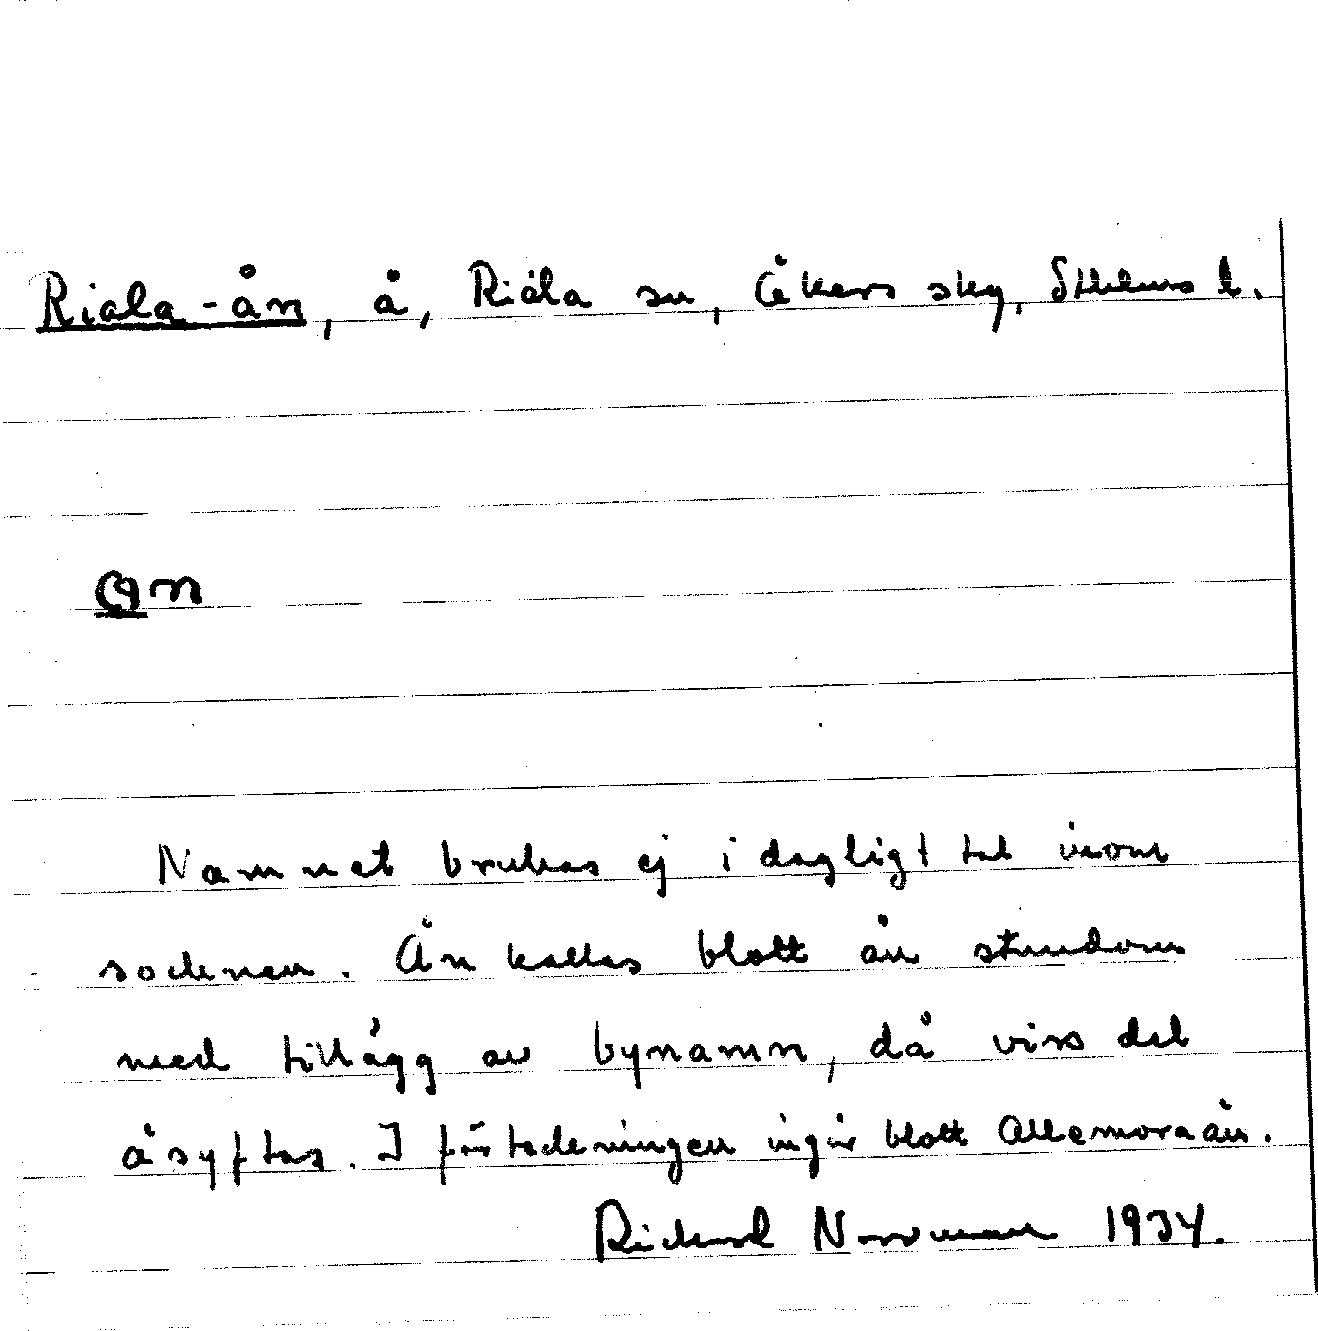 Riala-ån, å, Riala sn, Åkers skg, Sthlms l.
Namnet brukas ej i dagligt tal inom
socknen. Ån kallas blott ån stundom
med tillägg av bynamn, då viss del
åsyftas. I förteckningen ingår blott Allemoraån.
Richard Norrman 1934.